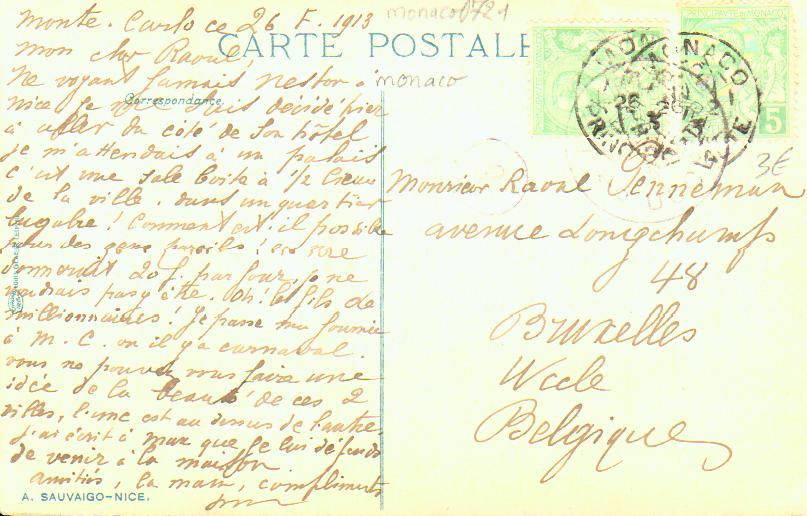 Monte. Carlo ce 26 F. 1913
monaco 0721
CARTE POSTALE
monaco
Correspondance.
mon cher Raoul,
Ne voyant jamais Nestor à
Nice je me suis décidé hier
à aller du côté de son hôtel
je m'attendais à un palais
c'est une sale boîte à 1/2 lieue
de la ville, dans un quartier
lugubre! Comment est-il possible
pour des gens pareils!
donnerait 20 f. par jour, je ne
voudrais pas y être. Oh! le fils de
millionnaires! Je passe ma journée
à M. C. où il y a carnaval.
vous ne pouvez vous faire une
idée de la beauté de ces 2
villes, l'une est au dessus de l'autre,
j'ai écrit à max que je lui défends
de venir à la maison
amitiés, la main, compliments
A. SAUVAIGO-NICE.
PRINCIPAUTÉ DE MONACO
5
MONACO
26
3€
Monsieur Raoul Penneman
avenue Longchamps
48
Bruxelles
Uccle
Belgique